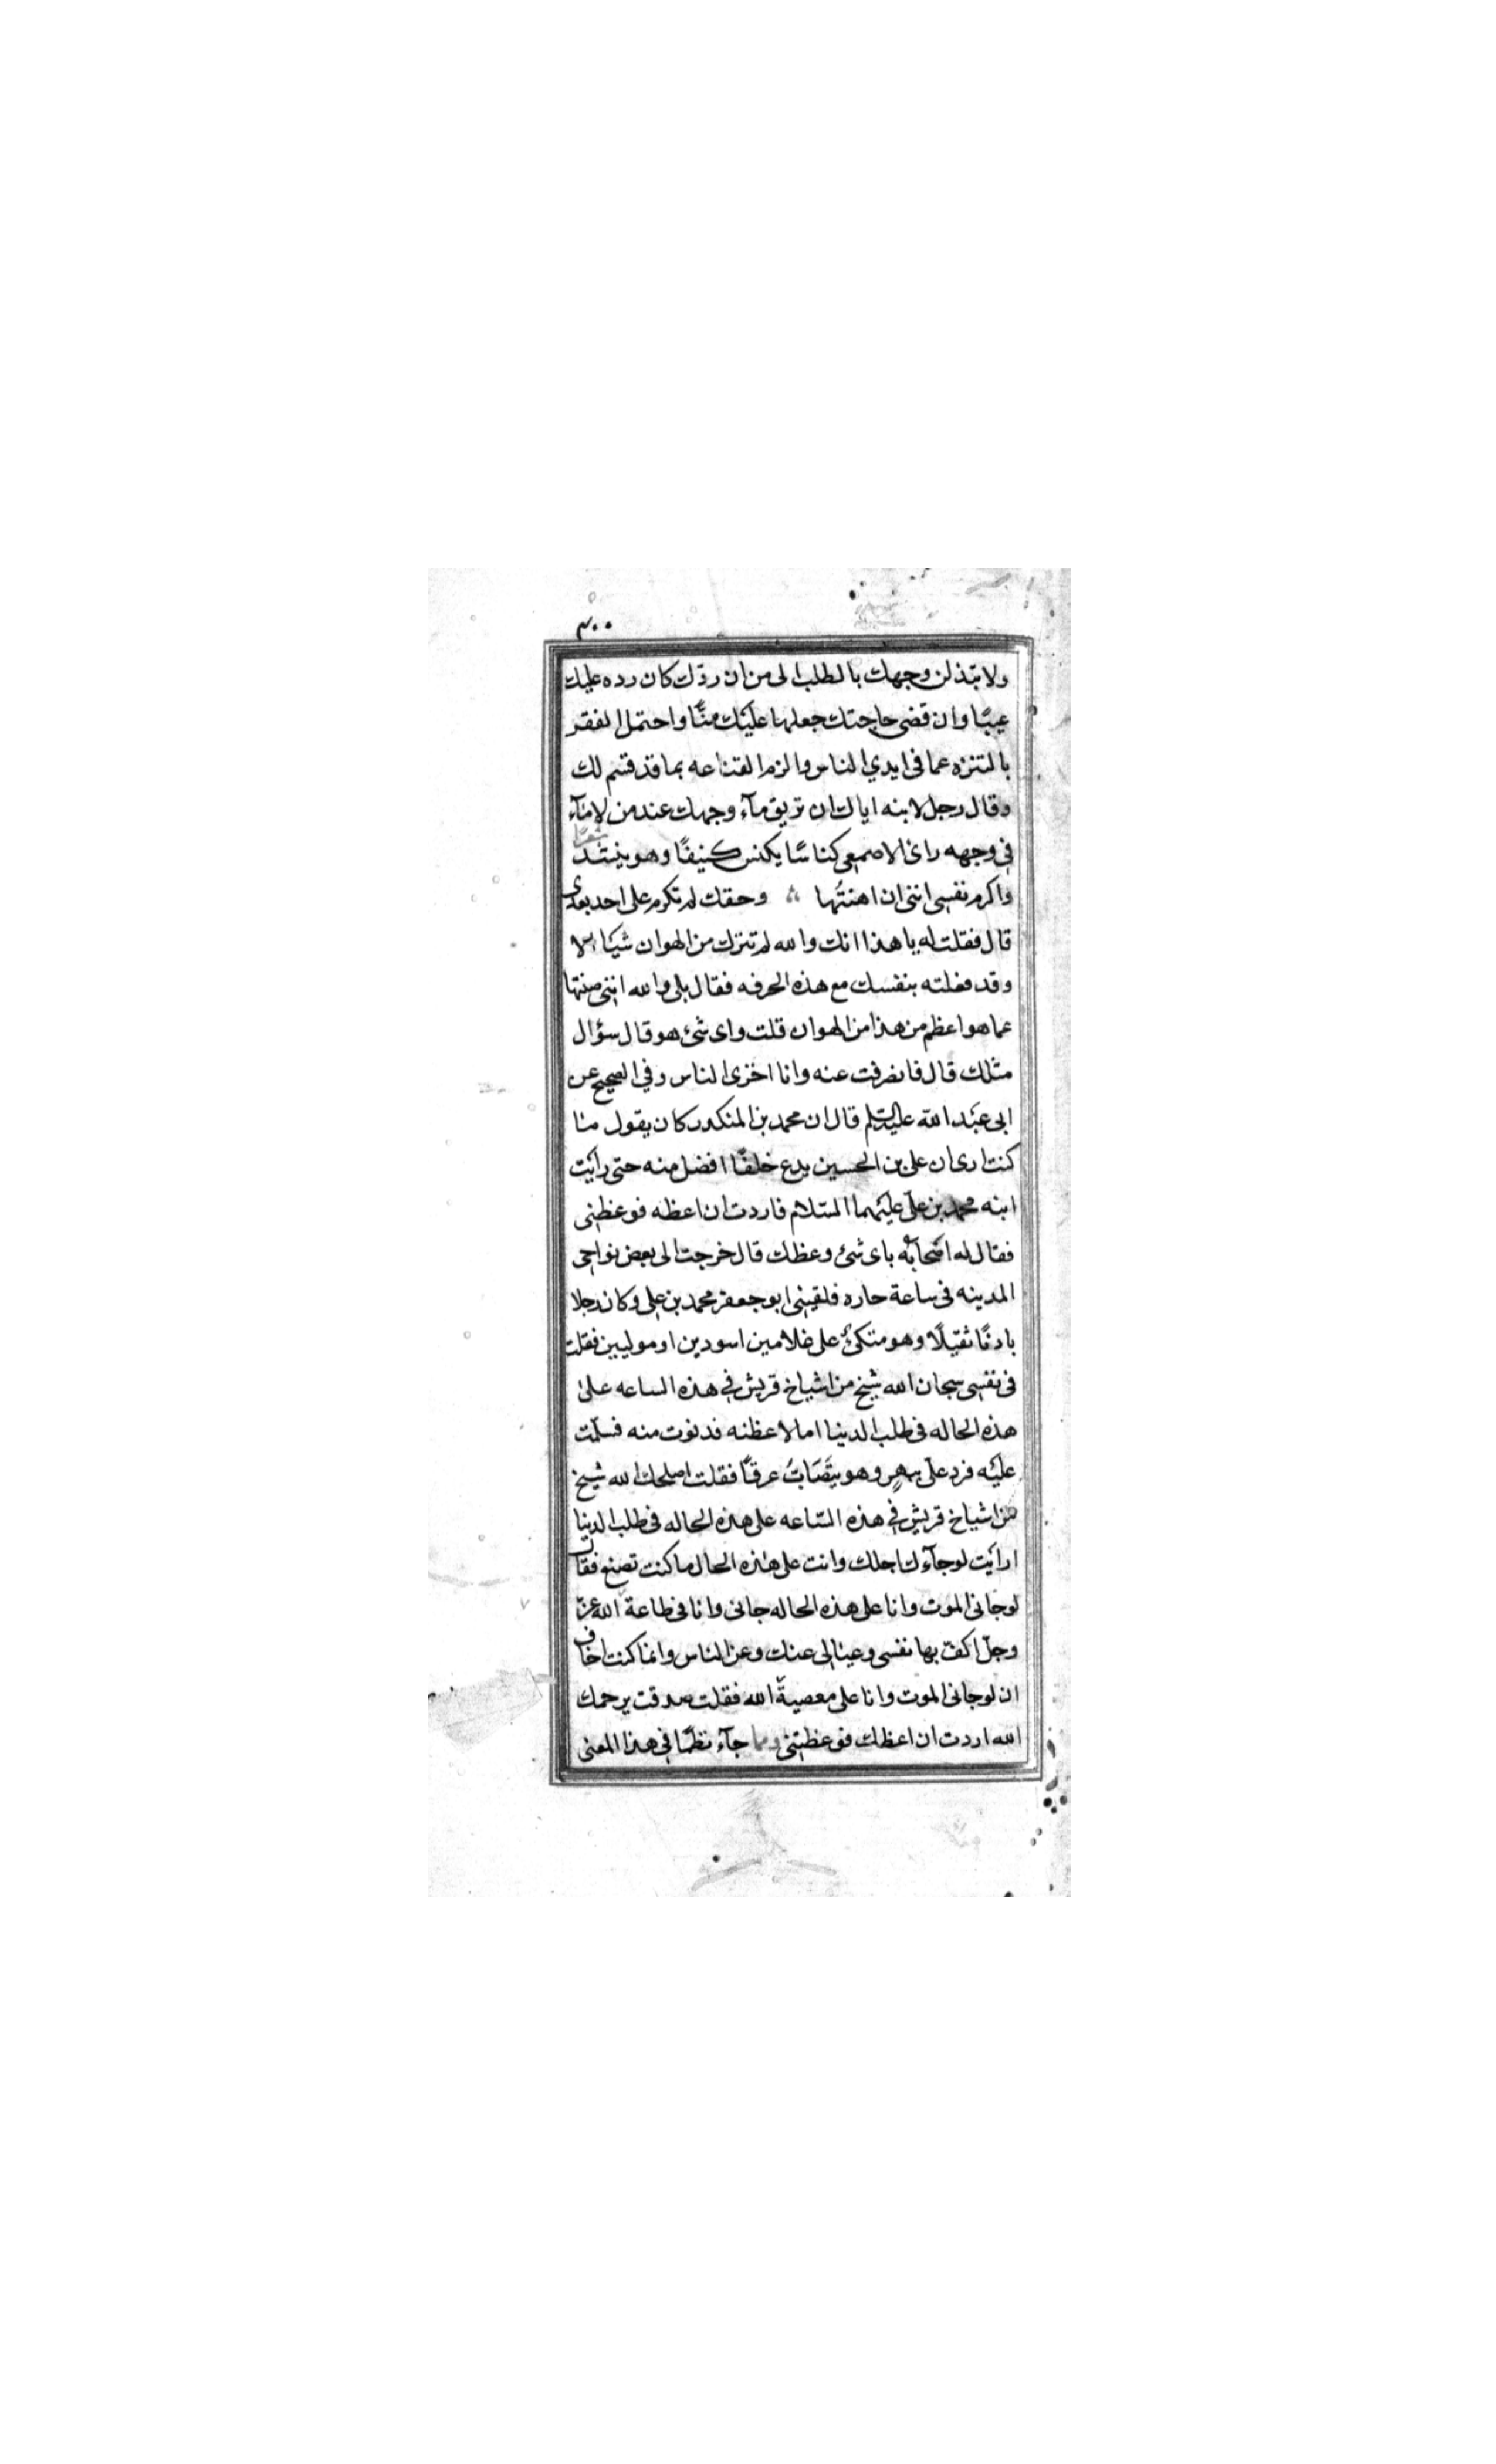 ٣٠٠
ولا تبذلن وجهك بالطلب الى من ان ردّك كان رده عليك
عيبًا وان قضى حاجتك جعلها عليك منًّا واحتمل الفقر
بالتنزه عما فى ايدي الناس والزم القناعه بما قد قسم لك
وقال رجل لابنه اياك ان تريق مآء وجهك عند من لا مآء
فى وجهه راى الاصمعى كناسًا يكنس كنيفًا وهو ينشد شعرًا
واكرم نفسى اننى ان اهنتُها وحقك لم تكرم على احد بعدى
قال فقلت له يا هذا انك والله لم تترك من الهوان شيئا الا
وقد فعلته بنفسك مع هذه الحرفه فقال بلى والله اننى صنتها
عما هو اعظم من هذا من الهوان قلت واى شئ هو قال سؤال
مثلك قال فانصرفت عنه وانا اخزى الناس وفي الصحيح عن
ابى عبد الله عليه السلم قال ان محمد بن المنكدر كان يقول ما
كنت ارى ان على بن الحسين يدع خلفًا افضل منه حتى رايت
ابنه محمد بن علىّ عليهما السّلام فاردت ان اعظه فوعظنى
فقال له اصحابه باى شئ وعظك قال خرجت الى بعض نواحى
المدينه فى ساعة حاره فلقينى ابو جعفر محمد بن على وكان رجلا
بادنًا ثقيلًا وهو متكئ على غلامين اسودين او موليين فقلت
فى نفسى سبحان الله شيخ من اشياخ قريش في هذه الساعه على
هذه الحاله فى طلب الدنيا اما لاعظنه فدنوت منه فسلّمت
عليه فرد علىّ بنهرٍ وهو يتصابّ عرقًا فقلت اصلحك الله شيخ
من اشياخ قريش في هذه السّاعه على هذه الحاله فى طلب الدنيا
ارايت لو جآءك اجلك وانت على هذه الحال ما كنت تصنع فقال
لو جانى الموت وانا على هذه الحاله جانى وانا فى طاعة الله عزّ
وجلّ اكفّ بها نفسى وعيالى عنك وعن الناس وانما كنت اخاف
ان لو جانى الموت وانا على معصية الله فقلت صدقت يرحمك
الله اردت ان اعظك فوعظتنى ومما جآء نظمًا فى هذا المعنى